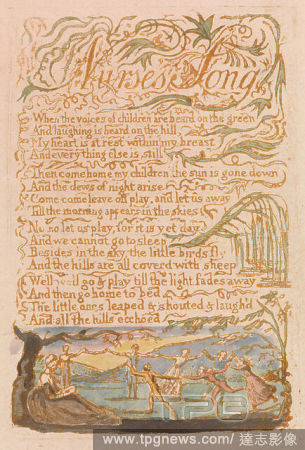 Nurse's Song
When the voices of children are heard on the green
And laughing is heard on the hill,
My heart is at rest within my breast
And every thing else is still
Then come home my children the sun is gone down
And the dews of night arise
Come come leave off play, and let us away
Till the morning appears in the skies
No no let us play, for it is yet day
And we cannot go to sleep
Besides in the sky, the little birds fly
And the hills are all coverd with sheep
Well well go & play till the light fades away
And then go home to bed
The little ones leaped & shouted & laugh'd
And all the hills ecchoed
TPG
www.tpgnews.com / 達志影像